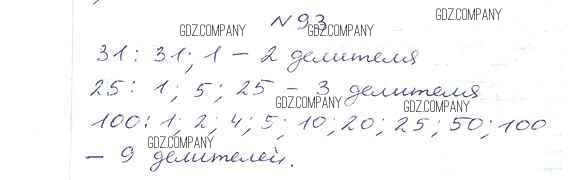 GDZ.COMPANY
№ 93
GDZ.COMPANY GDZ.COMPANY
31: 31; 1 – 2 делителя
GDZ.COMPANY
25: 1; 5; 25 – 3 делителя
GDZ.COMPANY GDZ.COMPANY
100: 1; 2; 4; 5; 10; 20; 25; 50; 100
GDZ.COMPANY
– 9 делителей.